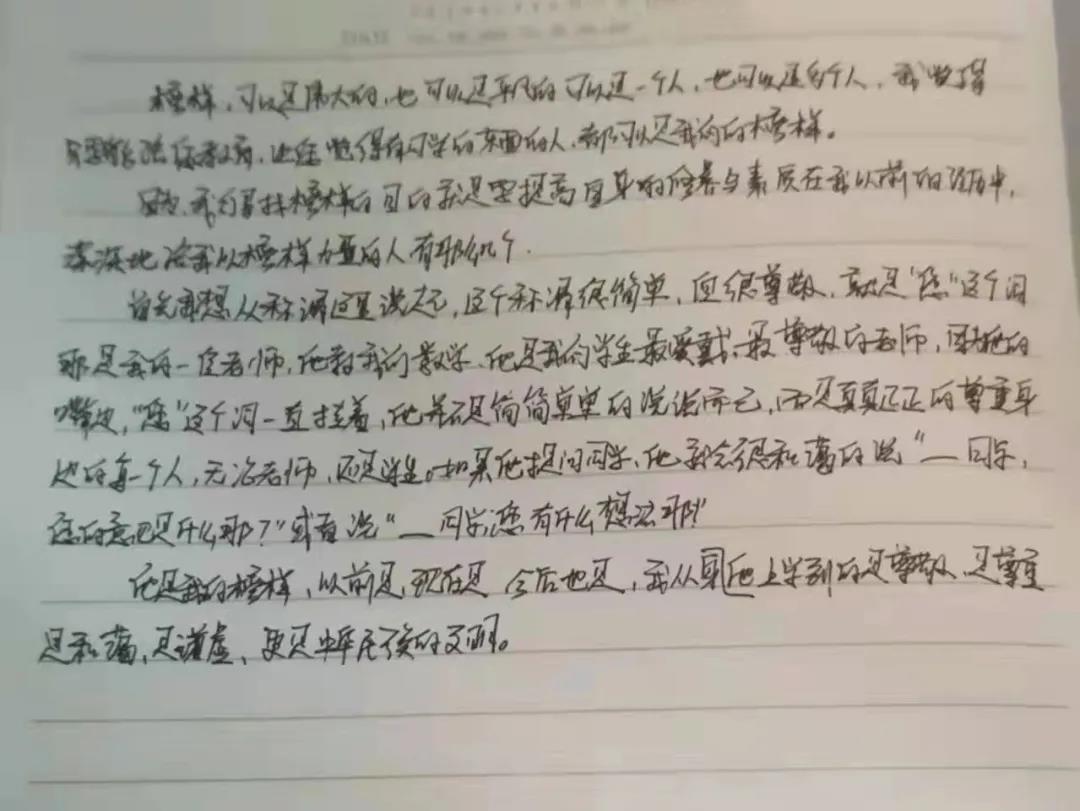 榜样,可以是伟大的,也可以是平凡的可以是一个人,也可以是多个人,我觉得
只要能给你教育,让你觉得有可学的东西的人,都可以是我们的榜样。
我们寻找榜样的目的就是要提高自身的修养与素质在我以前的经历中,
深深地给我以榜样力量的人有那么几个.
首先我想从称谓这里说起,这个称谓很简单,但很尊敬,就是“您”这个词
那是我的一位老师,他教我们数学,他是我们学生最爱戴、最尊敬的老师,因为他的
嘴边,“您”这个词一直挂着,他并不是简简单单的说说而已,而是真真正正的尊重身
边的每一个人,无论老师,还是学生。如果他提问同学,他就会很和蔼的说“__同学,
您的意见是什么那?”或者说“__同学,您有什么想法那”
他是我的榜样,以前是,现在是 今后也是,我从他上学到的是尊敬、是尊重
是和蔼,是谦虚,更是中华民族的文明。